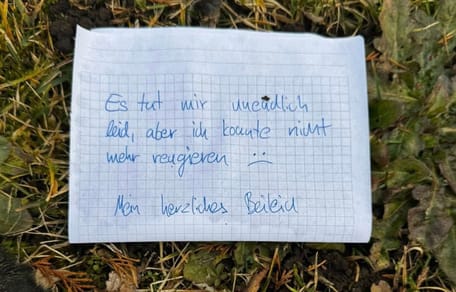 Es tut mir unendlich
leid, aber ich konnte nicht
mehr reagieren :(
Mein herzliches Beileid